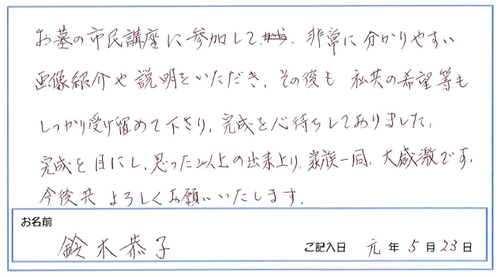 お墓の市民講座に参加して、非常に分かりやすい
画像紹介や説明をいただき、その後も私共の希望等も
しっかり受け留めて下さり、完成を心待ちしておりました。
完成を目にし、思った以上の出来上り、家族一同、大感激です。
今後共よろしくお願いいたします。
お名前
鈴木恭子
ご記入日 元年5月23日